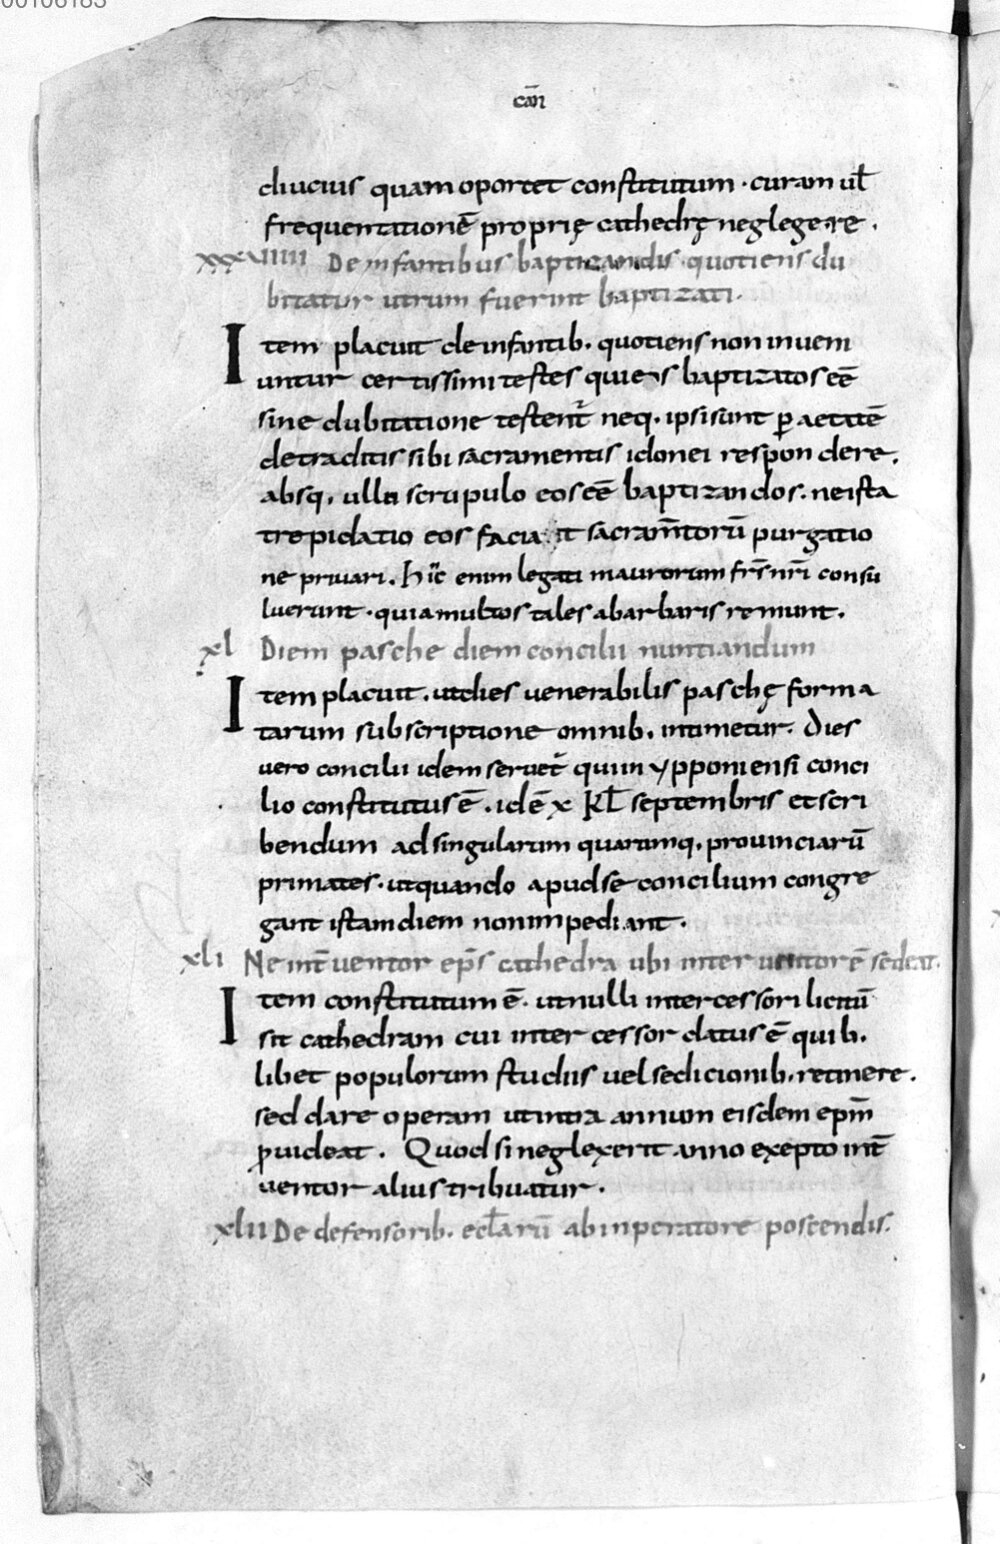 00106183
cāN
diucius quam oportet constitutum · curam uƚ
frequentationē proprię cathedrę neglegere .
xxxviiii De infantibus baptizandis quotiens du
bitatur utrum fuerint baptizati .
Item placuit de infantib. quotiens non inueni
untur certissimi testes qui eos baptizatos eē
sine dubitatione testent̄ neq. ipsi sunt ꝑ aetatē
de traditis sibi sacramentis idonei respondere .
absq. ullo scrupulo eos eē baptizandos . ne ista
trepidatio eos faciat sacram̄torū purgatio
ne priuari . hīc enim legati maurorum frs̄ nr̄i consu
luerunt . quia multos tales a barbaris remunt .
xl Diem pasche diem concilii nuntiandum
Item placuit . ut dies uenerabilis paschę forma
tarum subscriptione omnib. intimetur . Dies
uero concilii idem seruet̄ qui in ypponiensi conci
lio constitutus ē . id ē x Kƚ septembris et scri
bendum ad singularum quarumq. prouinciarū
primates . ut quando apud se concilium congre
gant istam diem non impediant .
xli Ne int̄uentor ep̄s cathedra ubi interuentorē sedeat .
Item constitutum ē . ut nulli intercessori licitū
sit cathedram cui intercessor datus ē quib.
libet populorum studiis uel sedicionib. retinere .
sed dare operam ut intra annum eisdem epm̄
ꝓuideat . Quod si neglexerit anno exepto int̄
uentor alius tribuatur .
xlii De defensorib. ecƚarū ab inperatore poscendis .